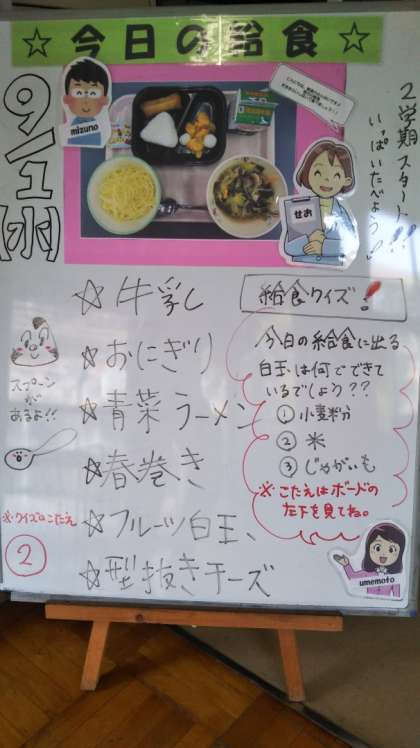 ☆今日の給食☆
mizuno
せお
9/1(水)
2学期スタート!!
いっぱいたべよう
☆牛乳
☆おにぎり
☆青菜ラーメン
☆春巻き
☆フルーツ白玉、
☆型抜きチーズ
スプーン
が
あるよ!!
※クイズのこたえ
②
給食クイズ!
今日の給食に出る
白玉は何でできて
いるでしょう??
①小麦粉
②米
③じゃがいも
※こたえはボードの
左下を見てね。
umemoto